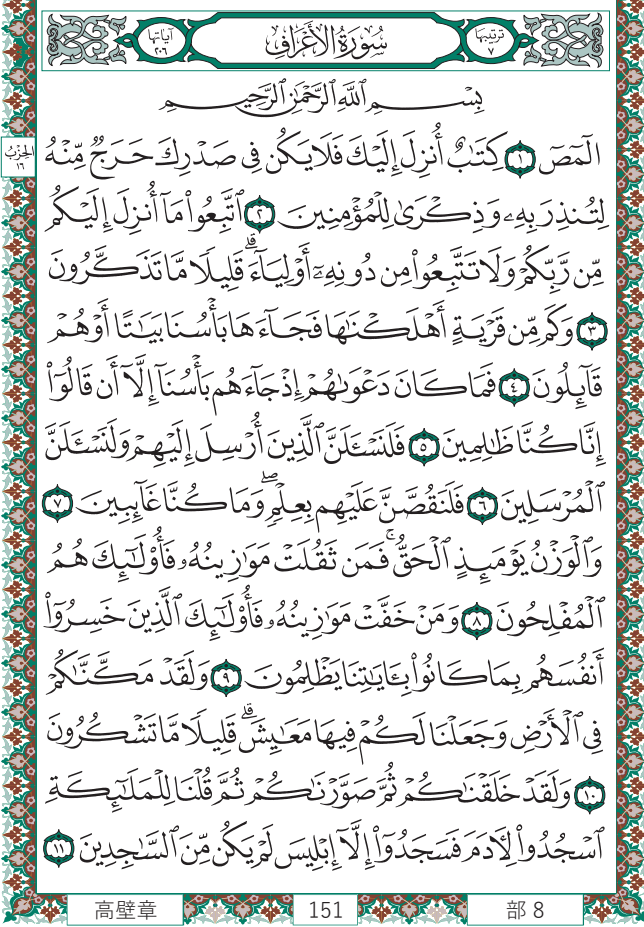 ترتيبها ٧ سُورَةُ الأَعْرَافِ آياتها ٢٠٦
بِسْمِ ٱللَّهِ ٱلرَّحْمَٰنِ ٱلرَّحِيمِ
الٓمٓصٓ ١ كِتَٰبٌ أُنزِلَ إِلَيْكَ فَلَا يَكُن فِى صَدْرِكَ حَرَجٌ مِّنْهُ
الحِزْبُ ١٦
لِتُنذِرَ بِهِۦ وَذِكْرَىٰ لِلْمُؤْمِنِينَ ٢ ٱتَّبِعُوا۟ مَآ أُنزِلَ إِلَيْكُم
مِّن رَّبِّكُمْ وَلَا تَتَّبِعُوا۟ مِن دُونِهِۦٓ أَوْلِيَآءَ ۗ قَلِيلًا مَّا تَذَكَّرُونَ
٣ وَكَم مِّن قَرْيَةٍ أَهْلَكْنَٰهَا فَجَآءَهَا بَأْسُنَا بَيَٰتًا أَوْ هُمْ
قَآئِلُونَ ٤ فَمَا كَانَ دَعْوَىٰهُمْ إِذْ جَآءَهُم بَأْسُنَآ إِلَّآ أَن قَالُوٓا۟
إِنَّا كُنَّا ظَٰلِمِينَ ٥ فَلَنَسْـَٔلَنَّ ٱلَّذِينَ أُرْسِلَ إِلَيْهِمْ وَلَنَسْـَٔلَنَّ
ٱلْمُرْسَلِينَ ٦ فَلَنَقُصَّنَّ عَلَيْهِم بِعِلْمٍ ۖ وَمَا كُنَّا غَآئِبِينَ ٧
وَٱلْوَزْنُ يَوْمَئِذٍ ٱلْحَقُّ ۚ فَمَن ثَقُلَتْ مَوَٰزِينُهُۥ فَأُو۟لَٰٓئِكَ هُمُ
ٱلْمُفْلِحُونَ ٨ وَمَنْ خَفَّتْ مَوَٰزِينُهُۥ فَأُو۟لَٰٓئِكَ ٱلَّذِينَ خَسِرُوٓا۟
أَنفُسَهُم بِمَا كَانُوا۟ بِـَٔايَٰتِنَا يَظْلِمُونَ ٩ وَلَقَدْ مَكَّنَّٰكُمْ
فِى ٱلْأَرْضِ وَجَعَلْنَا لَكُمْ فِيهَا مَعَٰيِشَ ۗ قَلِيلًا مَّا تَشْكُرُونَ
١٠ وَلَقَدْ خَلَقْنَٰكُمْ ثُمَّ صَوَّرْنَٰكُمْ ثُمَّ قُلْنَا لِلْمَلَٰٓئِكَةِ
ٱسْجُدُوا۟ لِءَادَمَ فَسَجَدُوٓا۟ إِلَّآ إِبْلِيسَ لَمْ يَكُن مِّنَ ٱلسَّٰجِدِينَ ١١
高壁章 151 部 8